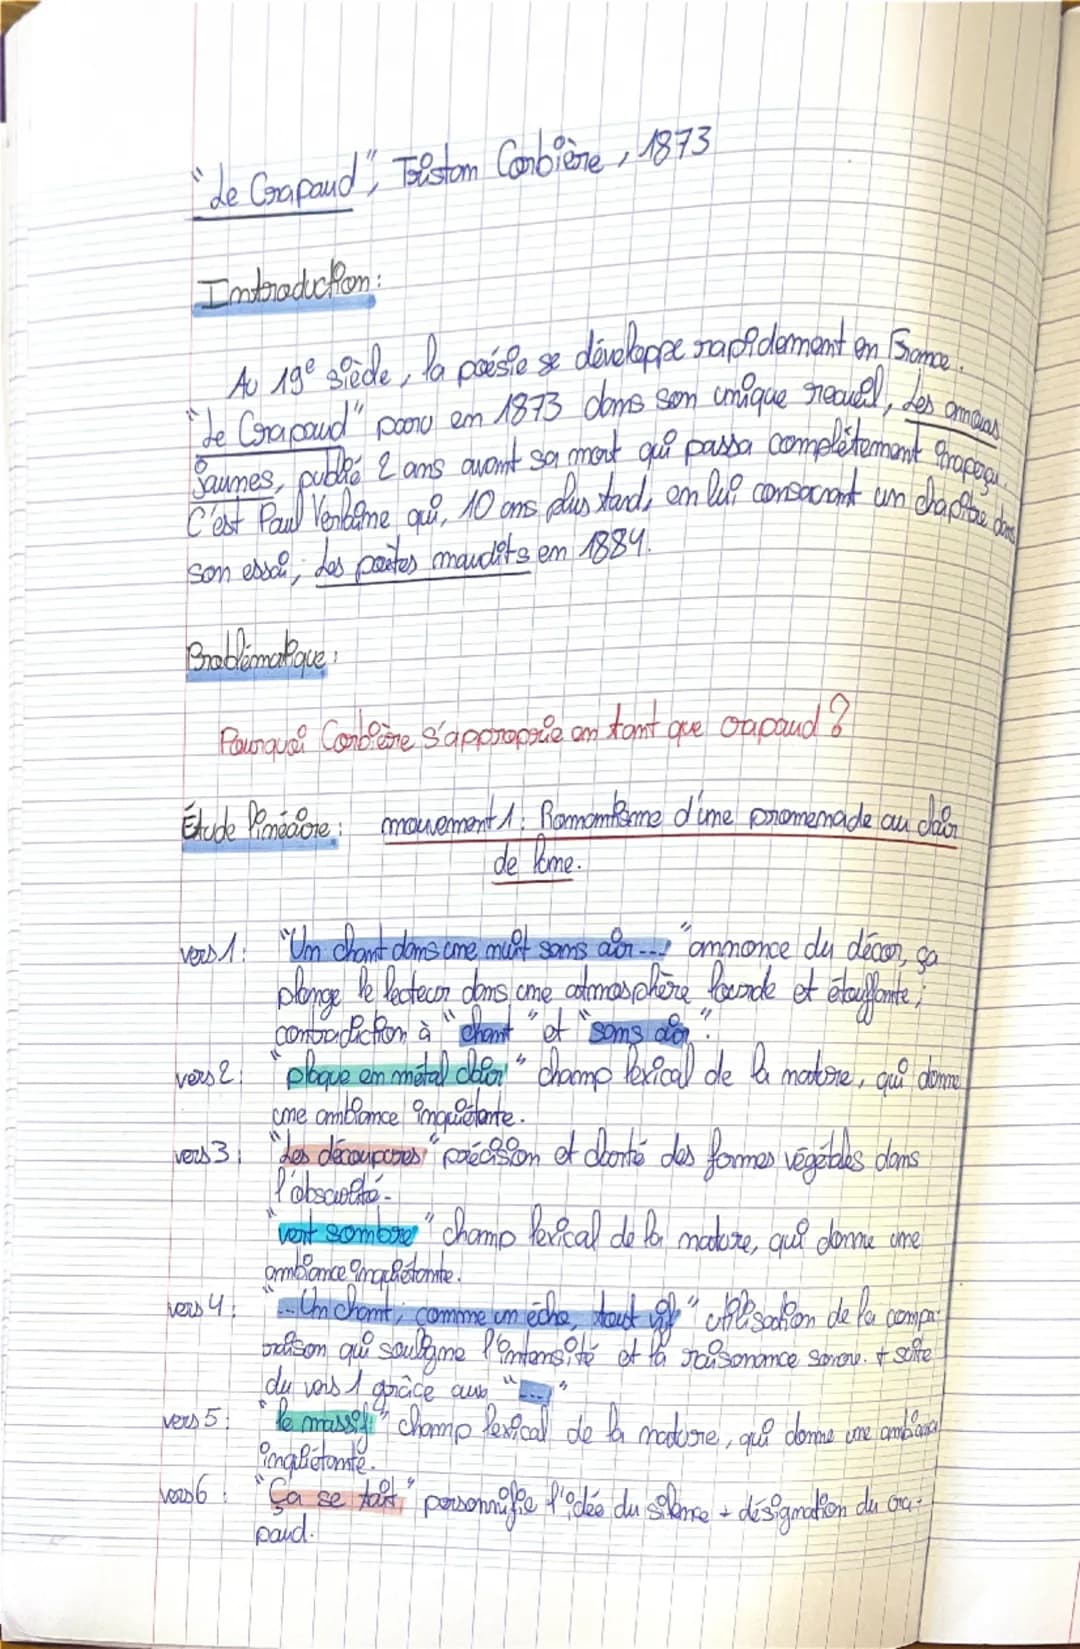 "Le Crapaud", Tristan Corbière, 1873
Introduction :
Au 19e siècle, la poésie se développe rapidement en France.
"Le Crapaud" paru en 1873 dans son unique recueil, Les amours
Jaunes, publié 2 ans avant sa mort qui passa complètement inaperçu.
C'est Paul Verlaine qui, 10 ans plus tard, en lui consacrant un chapitre dans
son essai, Les poètes maudits en 1884.
Problématique :
Pourquoi Corbière s'approprie en tant que crapaud ?
Étude linéaire : mouvement 1 : Romantisme d'une promenade au clair
de lune.
vers 1 : "Un chant dans une nuit sans air..." annonce du décor, ça
plonge le lecteur dans une atmosphère lourde et étouffante ;
contradiction à "chant" et "sans air".
vers 2 : "plaque en métal clair" champ lexical de la nature, qui donne
une ambiance inquiétante.
vers 3 : "Les découpures" précision et clarté des formes végétales dans
l'obscurité.
"vert sombre" champ lexical de la nature, qui donne une
ambiance inquiétante.
vers 4 : "... Un chant ; comme un écho, tout vif" utilisation de la compa-
raison qui souligne l'intensité et la raisonance sonore. + suite
du vers 1 grâce aux "..."
vers 5 : "le massif" champ lexical de la nature, qui donne une ambiance
inquiétante.
vers 6 : "Ça se tait" personnifie l'idée du silence + désignation du cra-
paud.